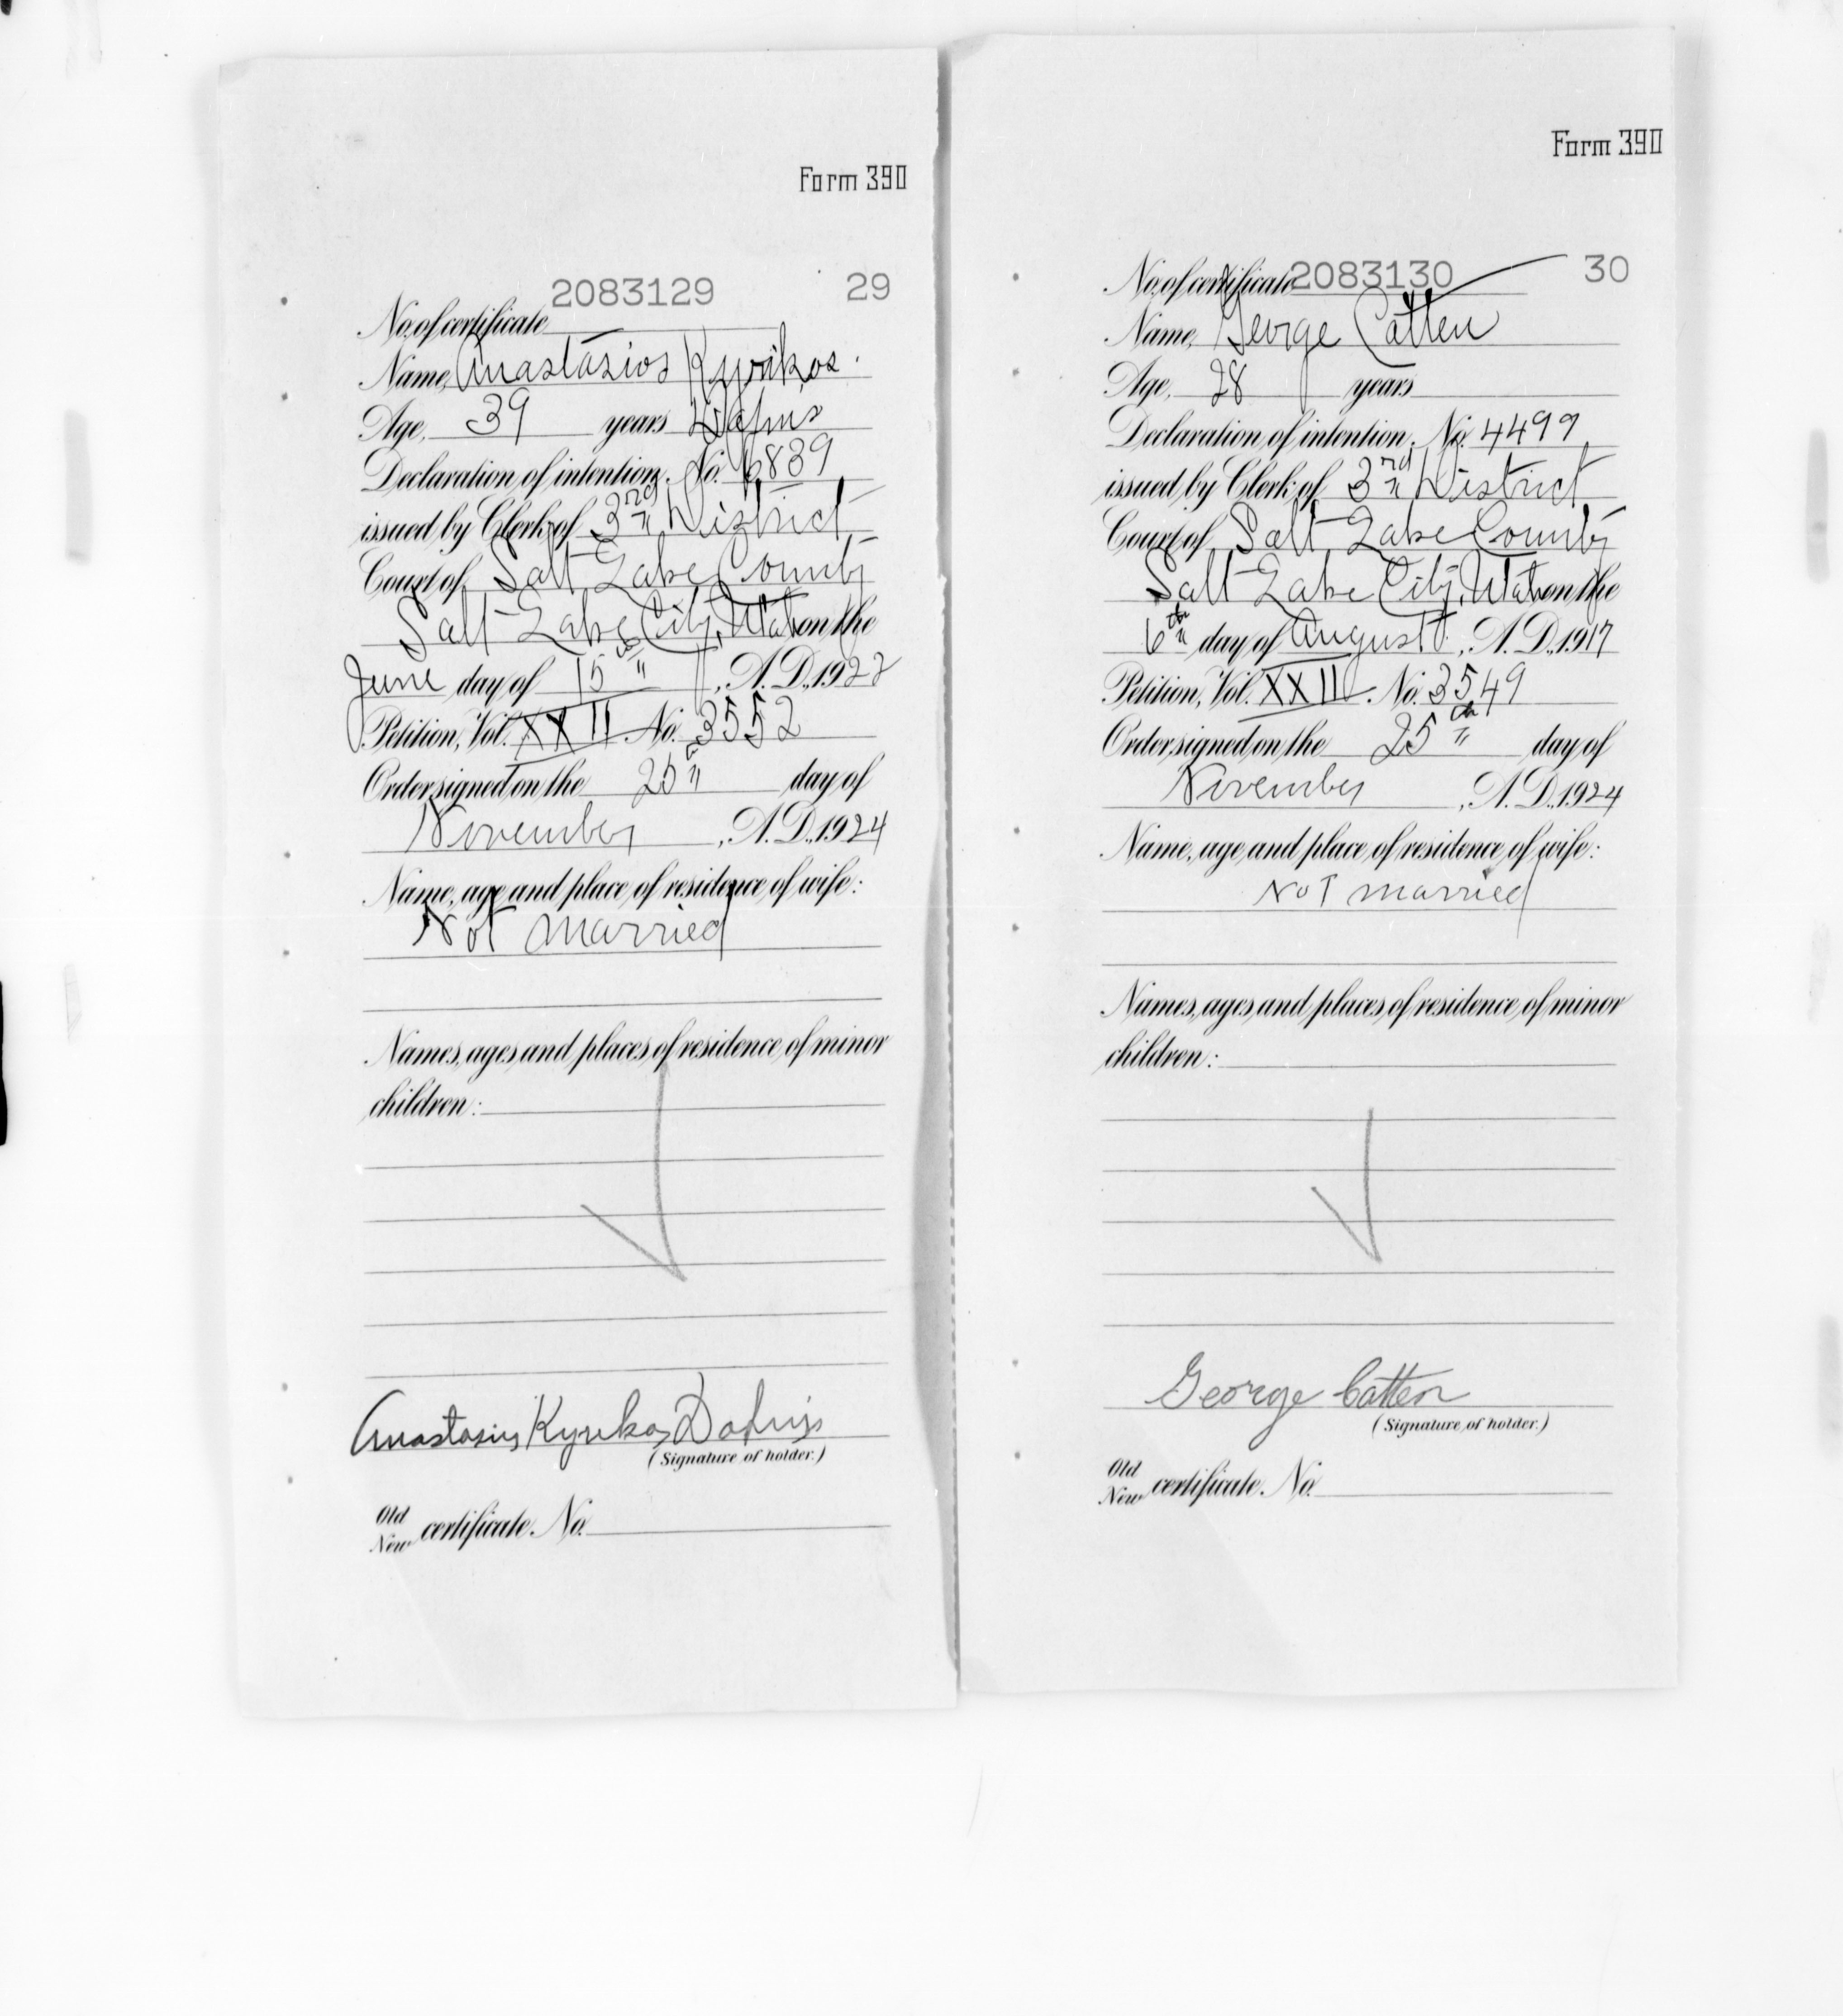 Form 390
2083129 29
No. of certificate
Name, Anastasios Kyrikos.
Age, 39 years Dafnis
Declaration of intention, No. 6839
issued by Clerk of 3rd District
Court of Salt Lake County
Salt Lake City, Utah on the
June day of 15th, A. D., 1922
Petition, Vol. XXII No. 3552
Order signed on the 25th day of
November, A. D., 1924
Name, age and place of residence of wife:
Not married
Names, ages and places of residence of minor
children:
Anastasios Kyrikos Dafnis
(Signature of holder.)
Old
New certificate, No.
Form 390
No. of certificate 2083130 30
Name, George Catten
Age, 28 years
Declaration of intention, No. 4499
issued by Clerk of 3rd District
Court of Salt Lake County
Salt Lake City, Utah on the
6th day of August, A. D., 1917
Petition, Vol. XXII. No. 3549
Order signed on the 25th day of
November, A. D., 1924
Name, age and place of residence of wife:
Not married
Names, ages and places of residence of minor
children:
George Catten
(Signature of holder.)
Old
New certificate, No.